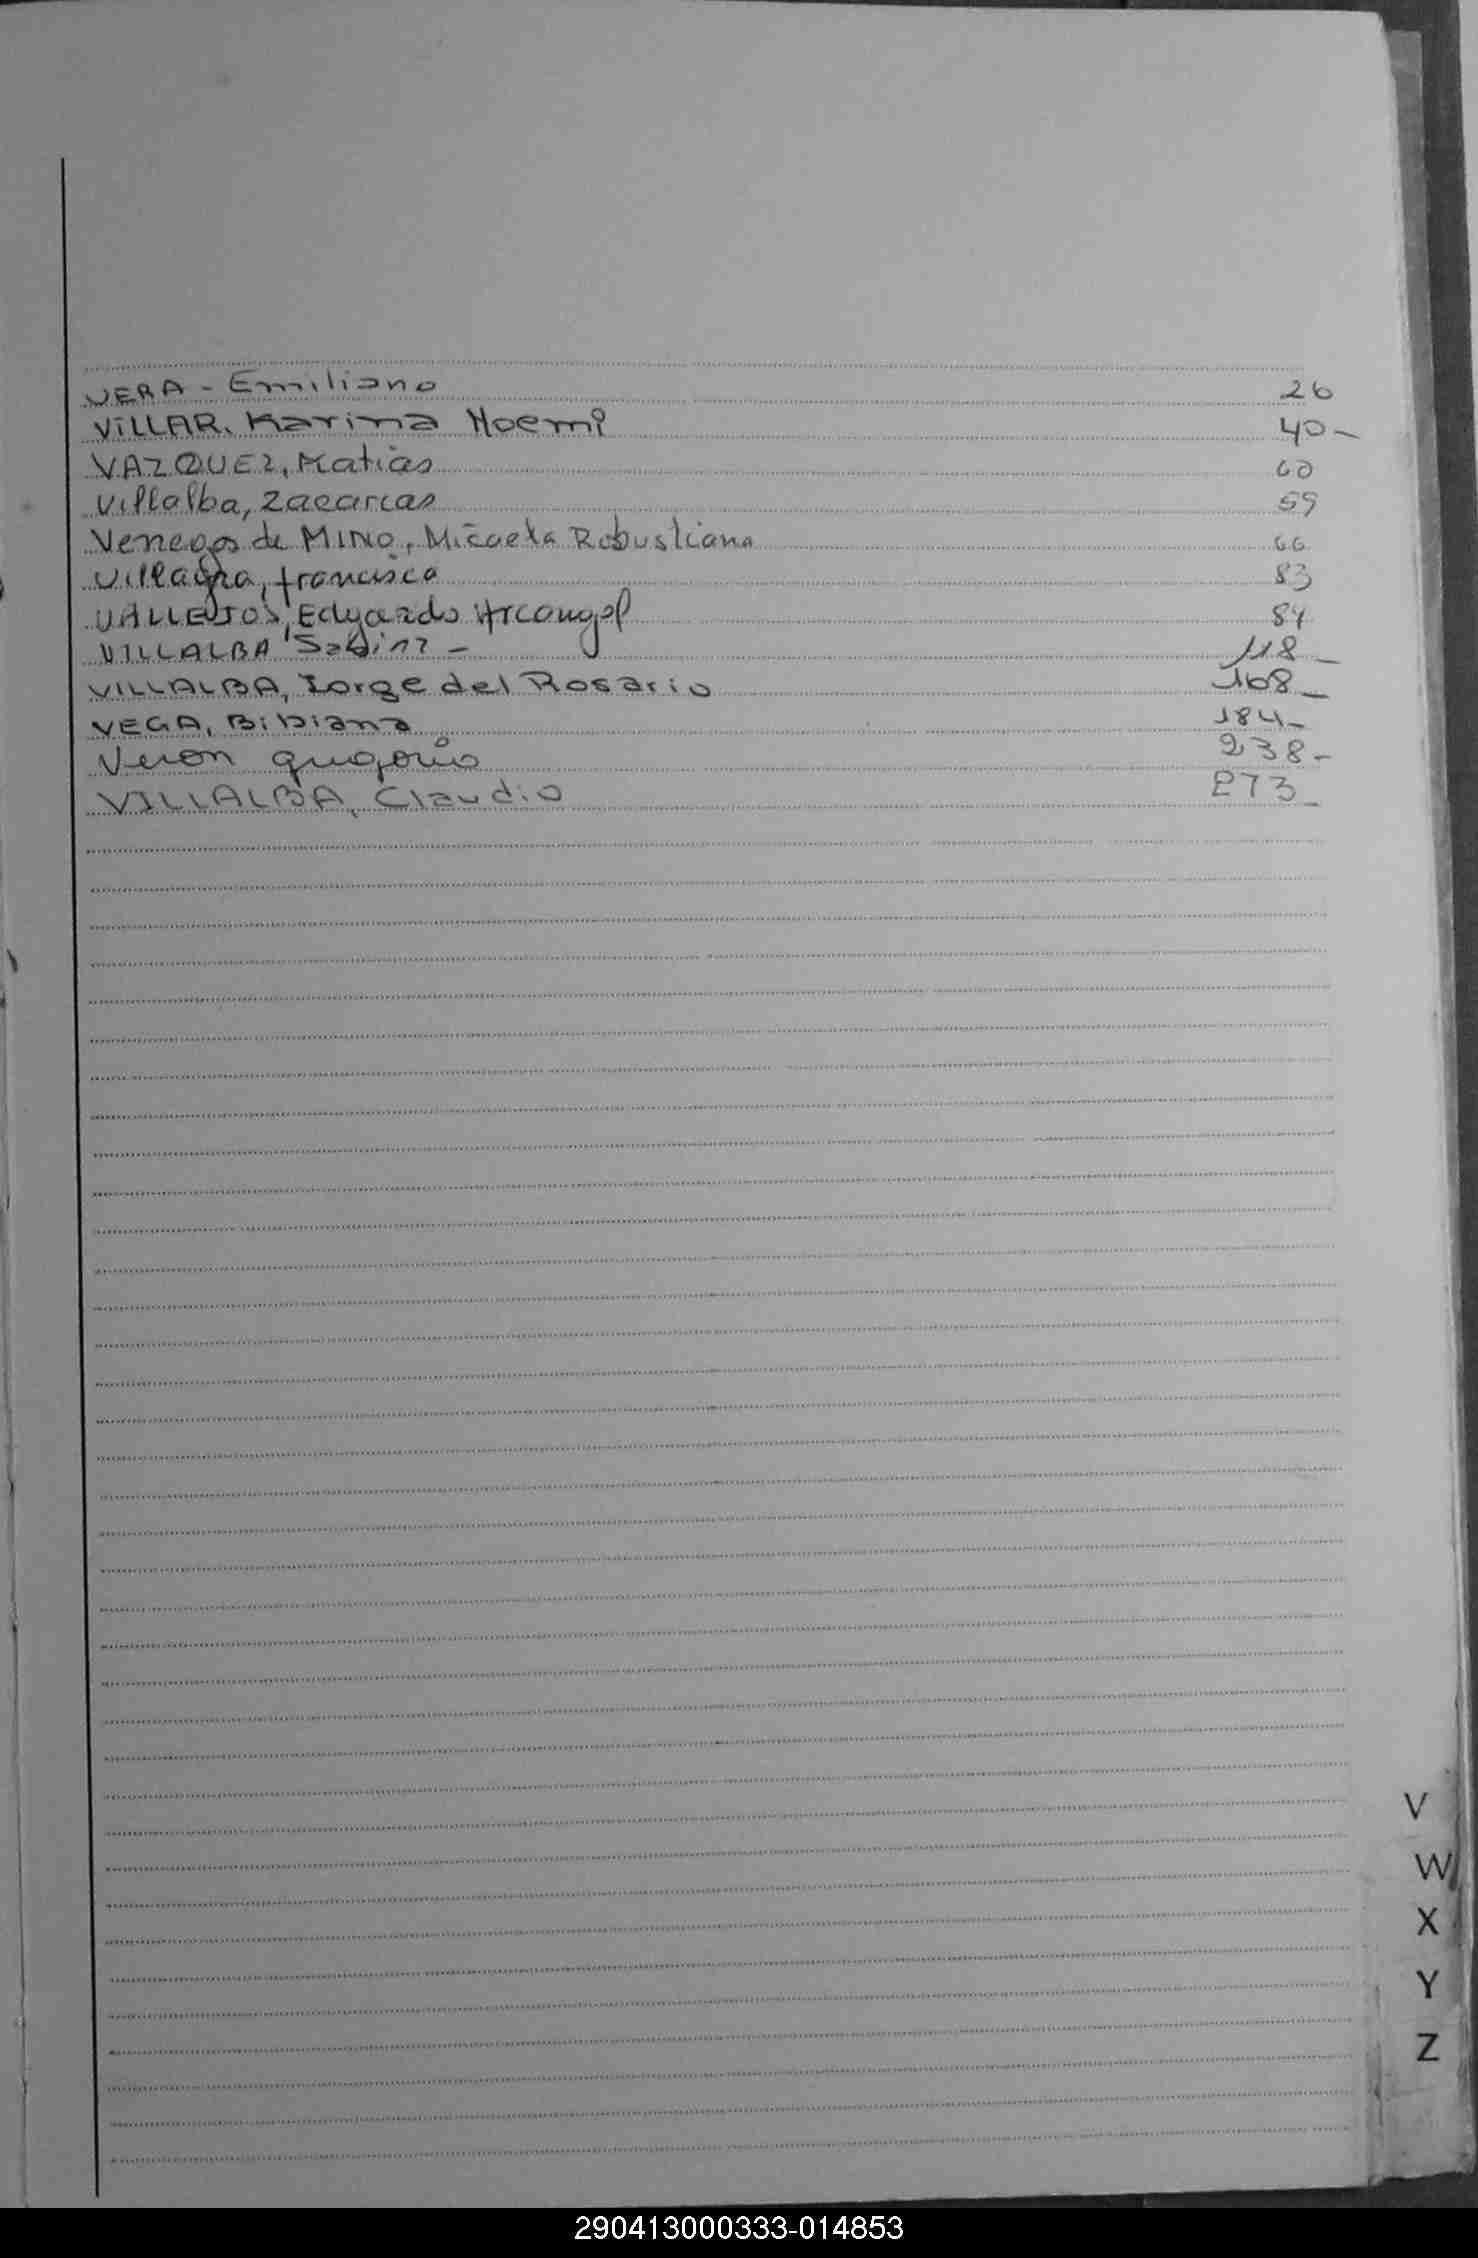 VERA - Emiliano 26
VILLAR, Karina Noemi 40-
VAZQUEZ, Matias 60
Villalba, Zacarias 59
Venegas de MINO, Micaela Robustiana 66
Villagra, francisca 83
VALLEJOS, Edgardo Arcangel 84
VILLALBA Sabina - 118-
VILLALBA, Jorge del Rosario 168-
VEGA, Bibiana 184-
Veron gregorio 238-
VILLALBA, Claudio 273-
V
W
X
Y
Z
290413000333-014853